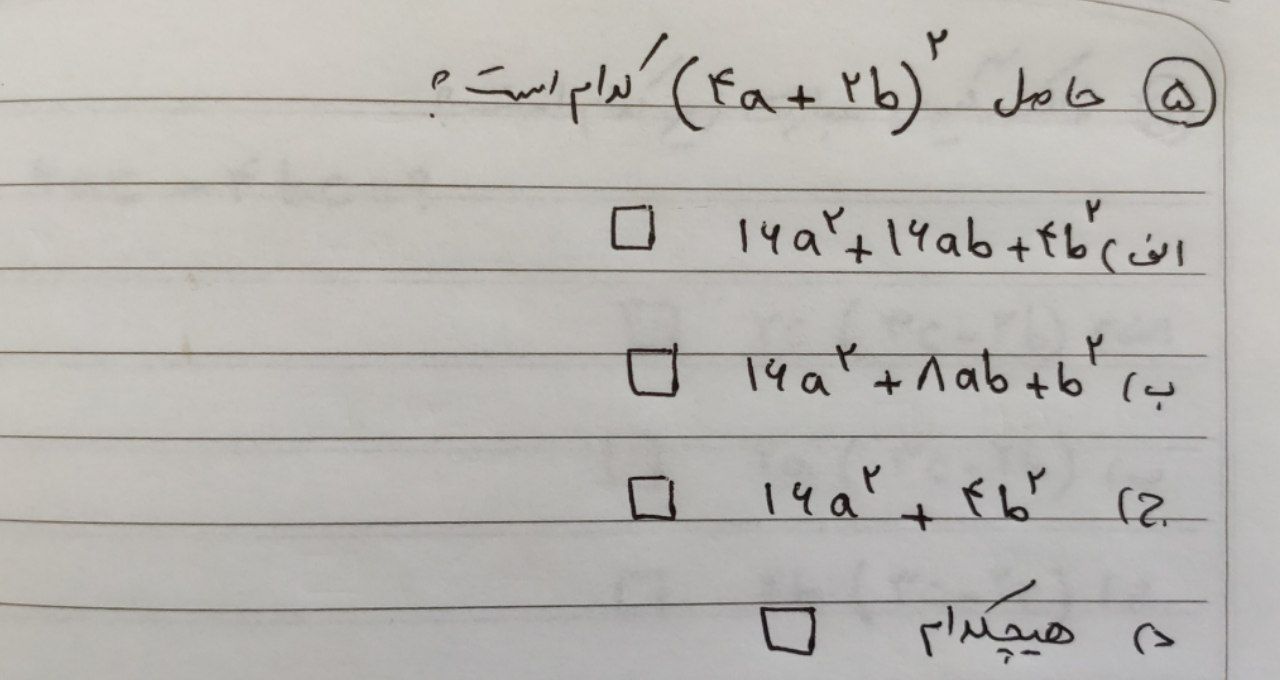 ۵ حاصل (۴a + ۲b)^۲ کدام است؟
الف) ۱۶a^۲ + ۱۶ab + ۴b^۲ □
ب) ۱۶a^۲ + ۸ab + b^۲ □
ج) ۱۶a^۲ + ۴b^۲ □
د) هیچکدام □